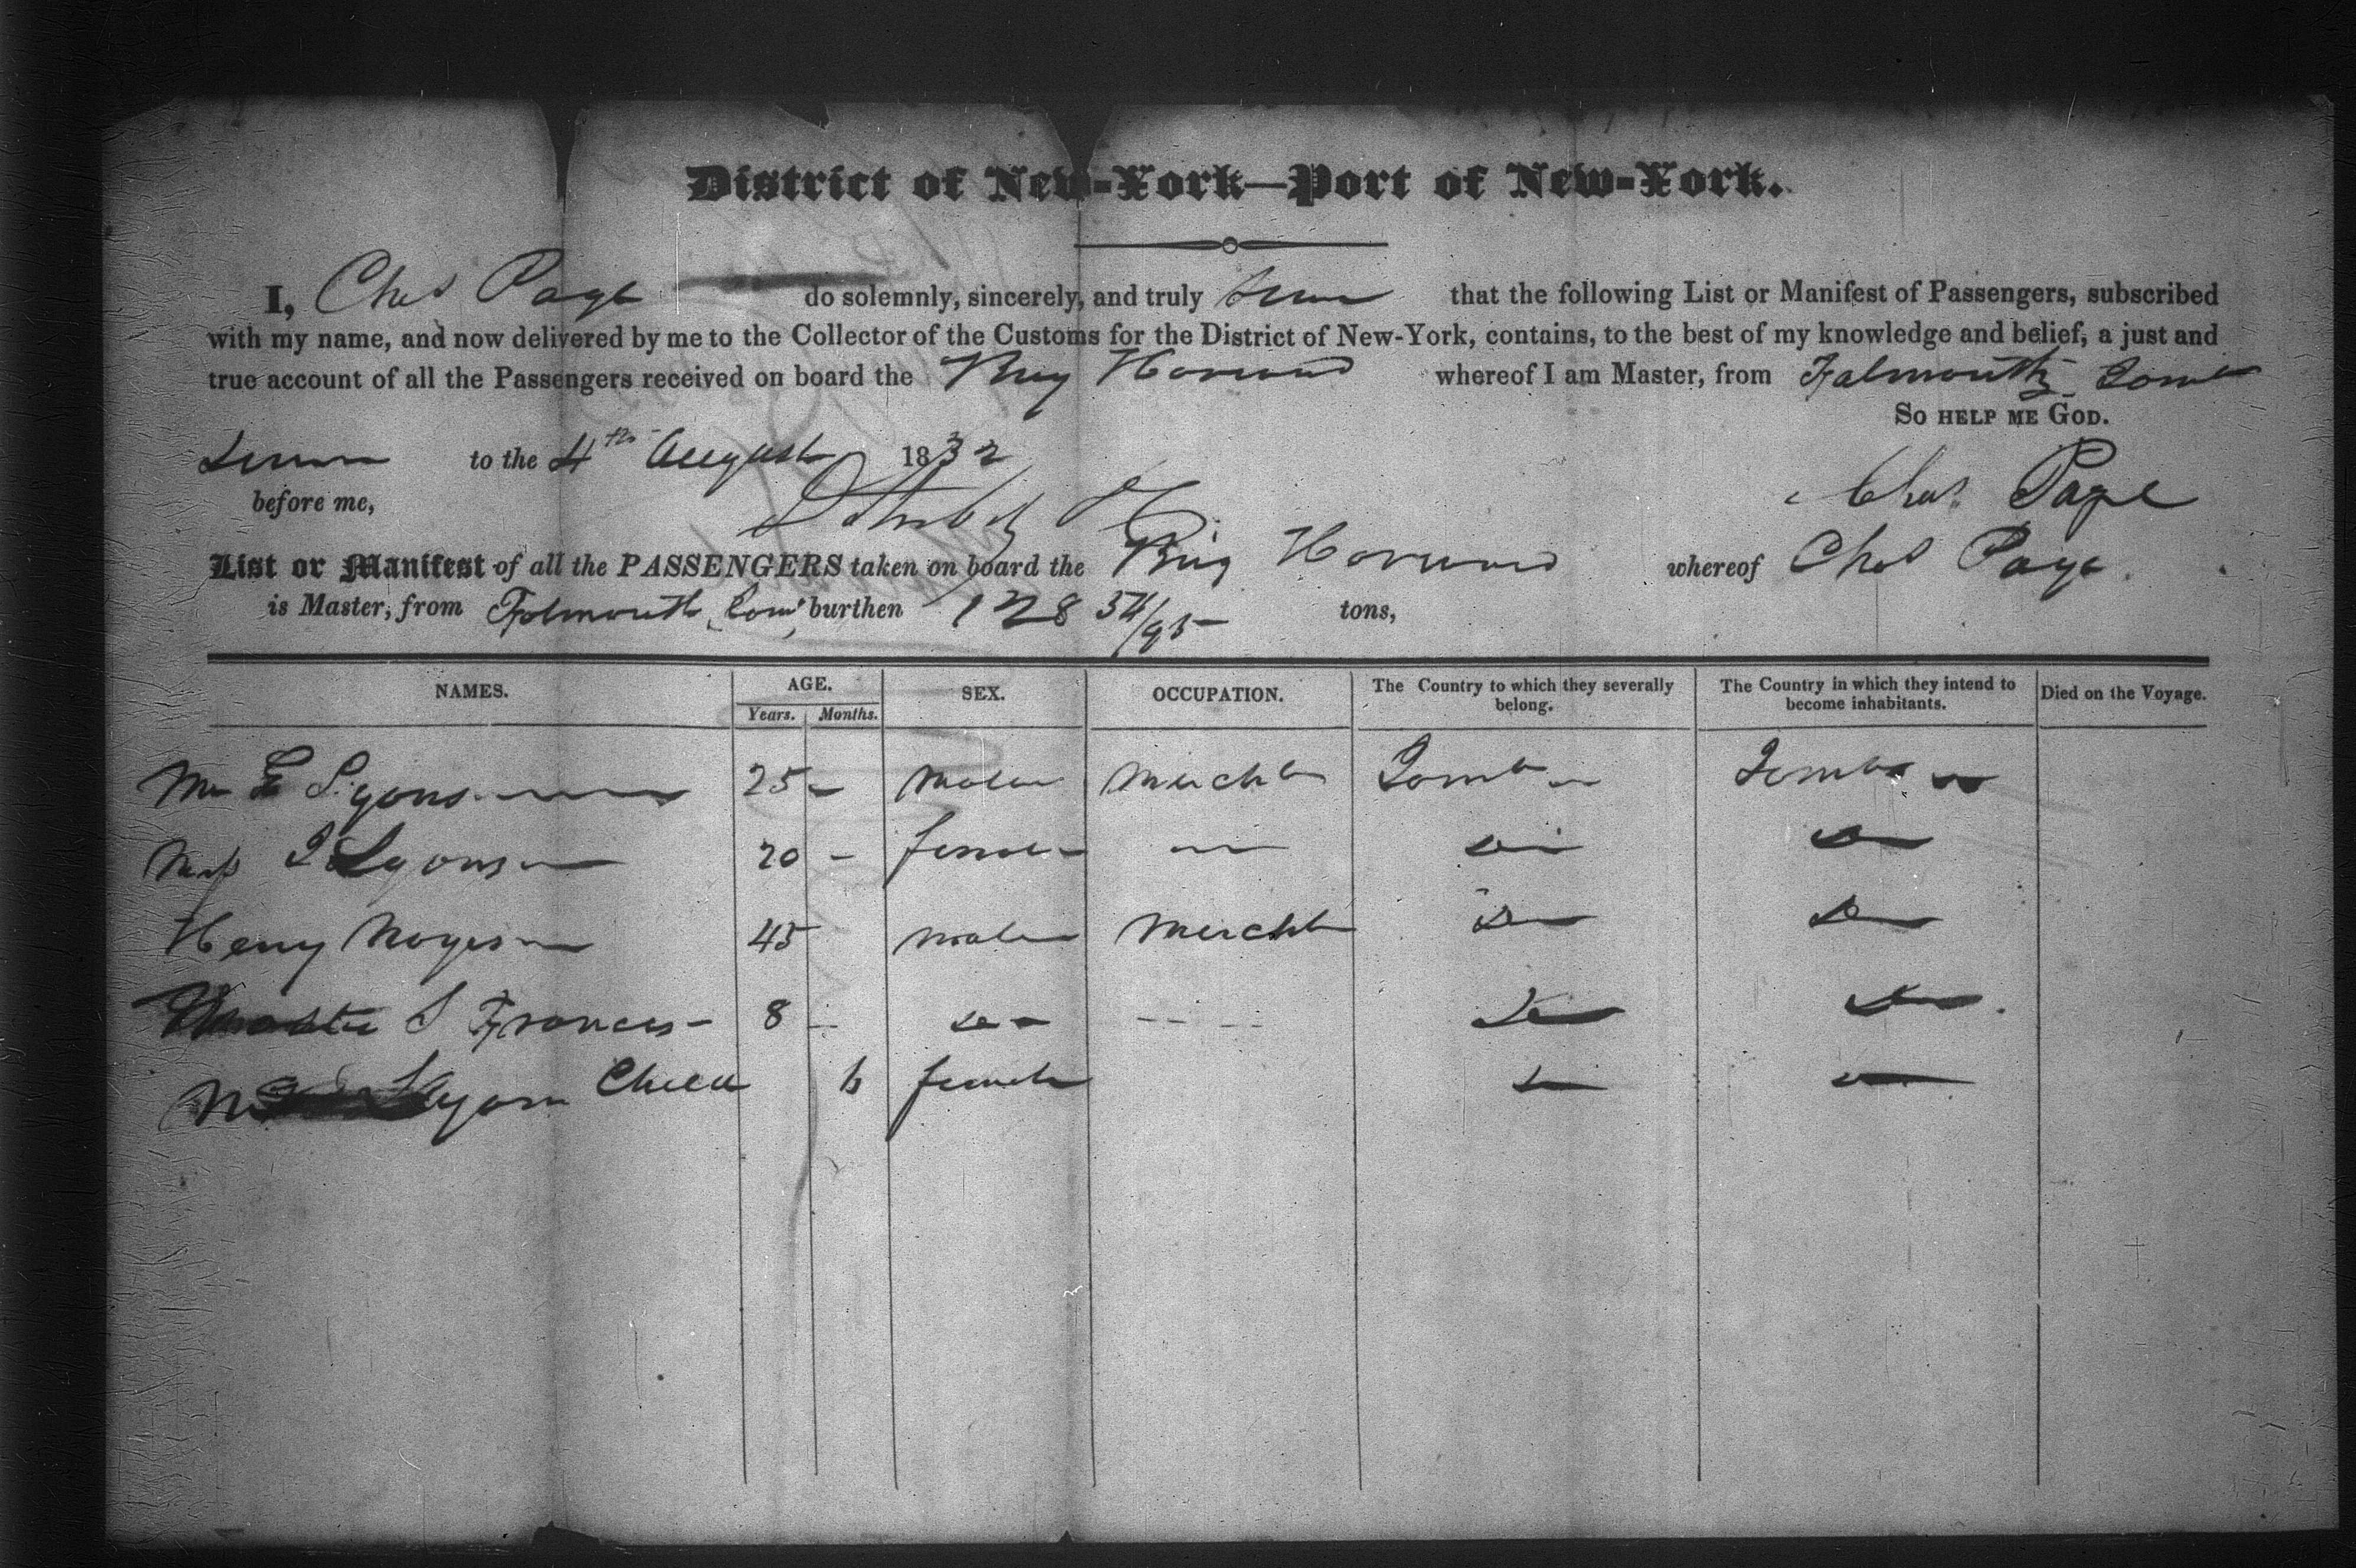 District of New-York—Port of New-York.
I, Chas Page do solemnly, sincerely, and truly swear that the following List or Manifest of Passengers, subscribed
with my name, and now delivered by me to the Collector of the Customs for the District of New-York, contains, to the best of my knowledge and belief, a just and
true account of all the Passengers received on board the Brig whereof I am Master, from Falmouth
So help me God.
Sworn to the 4th August 1832
Chas Page
before me,
List or Manifest of all the PASSENGERS taken on board the Brig whereof Chas Page
is Master, from Falmouth burthen 128 54/95 tons,
NAMES. AGE. SEX. OCCUPATION. The Country to which they severally belong. The Country in which they intend to become inhabitants. Died on the Voyage.
Years. Months.
Mr Lyons 25 - Male Mercht
Lyons 20 - female
Henry 45 Male Mercht
Master S Francis 8 - do
Lyons Child female